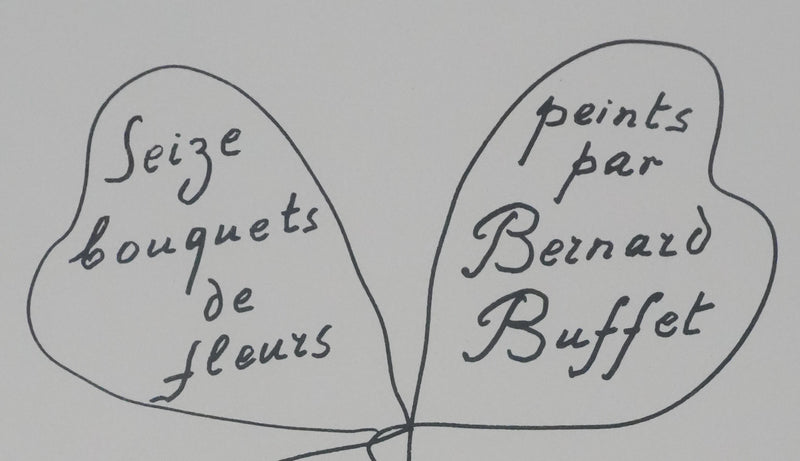 Seize
bouquets
de
fleurs
peints
par
Bernard
Buffet